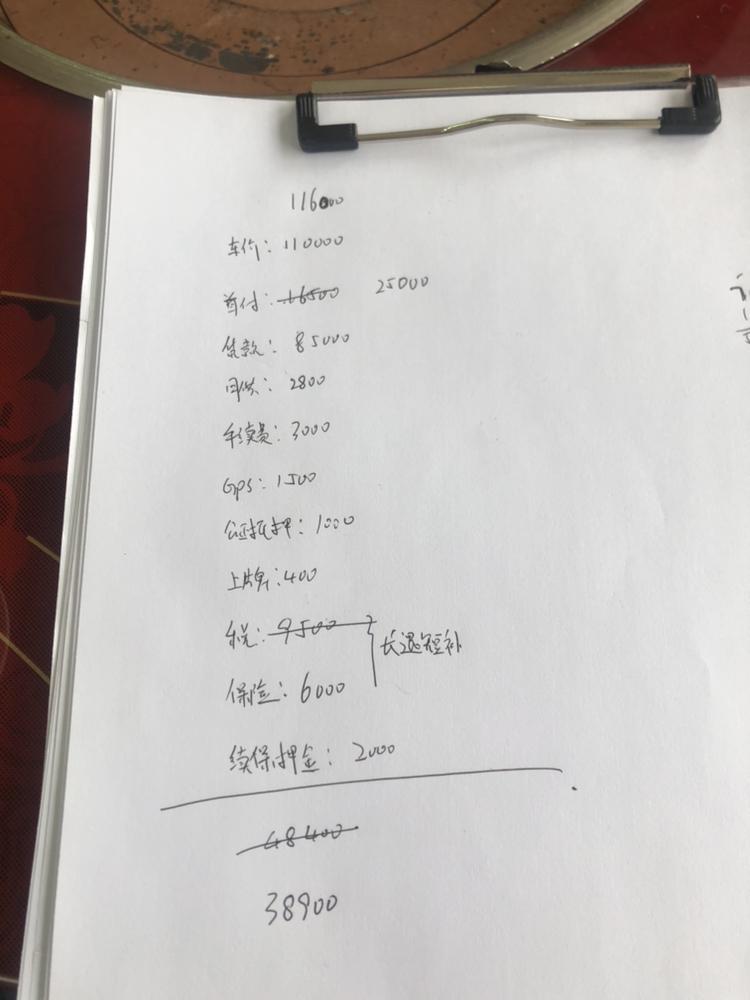 116000
车价：110000
首付：16500 25000
贷款：85000
月供：2800
手续费：3000
GPS：1500
公证抵押：1000
上牌：400
税：9500
长退短补
保险：6000
续保押金：2000
48400
38900